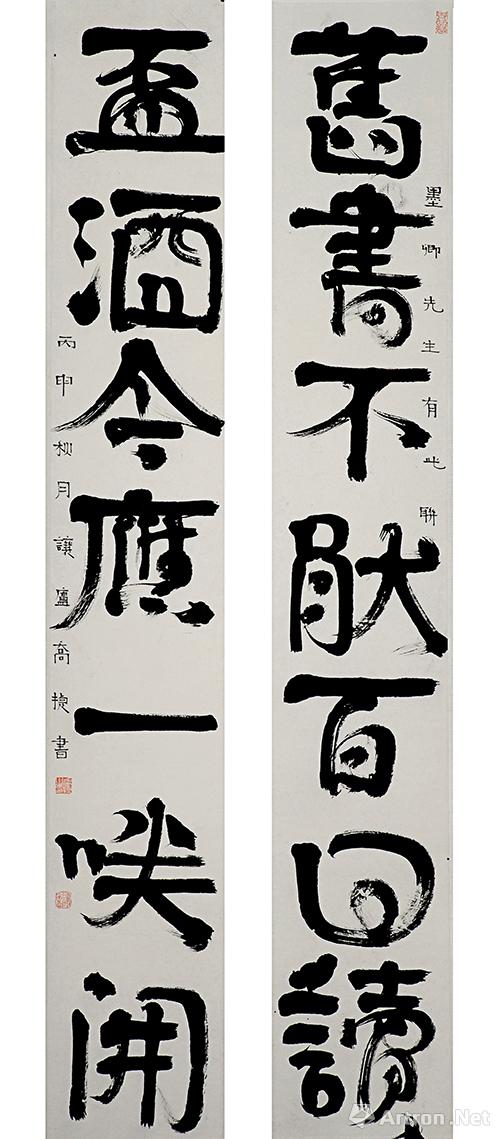 舊書不猒百回讀
墨卿先生有此聯
盃酒今應一咲開
丙申柳月讓廬書
Artron.Net